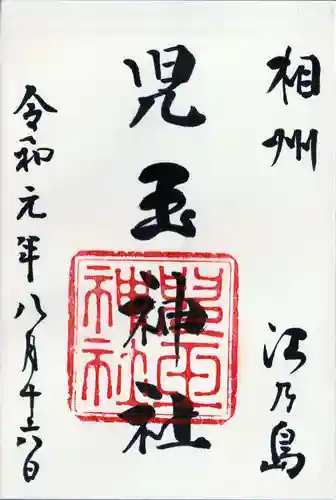 相州 江乃島
児玉神社
令和元年八月十六日
児玉神社